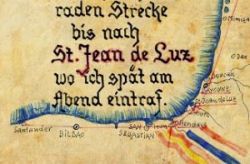 raden Strecke
bis nach
St. Jean de Luz
wo ich spät am
Abend eintraf.
Santander
BILBAO
SAN
SEBASTIAN
Hendaye